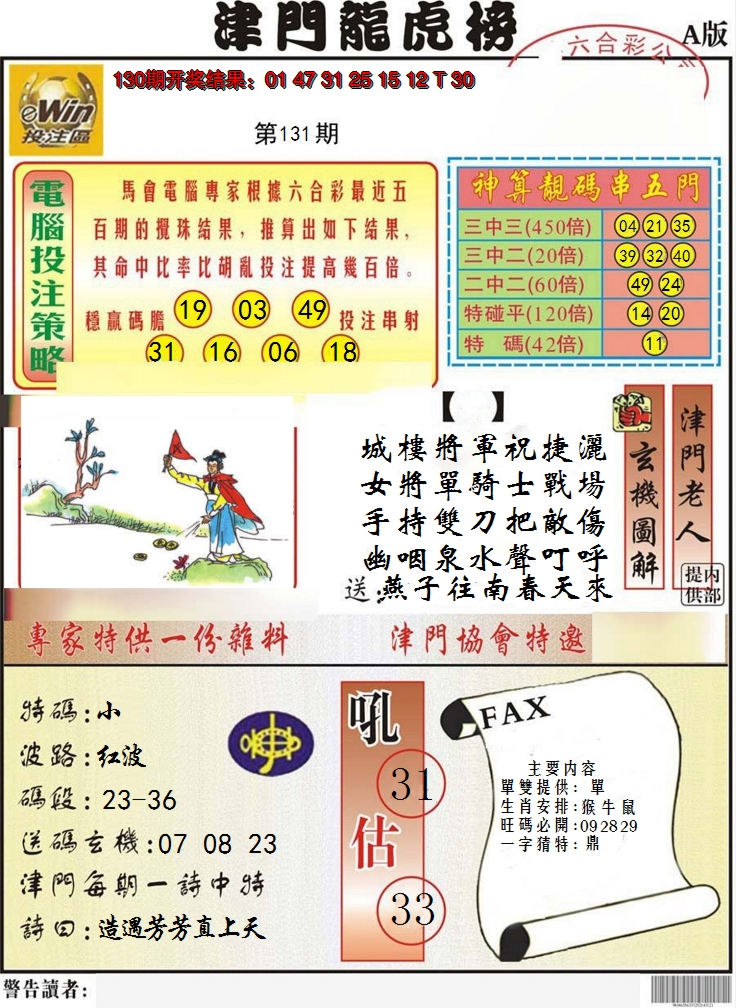 津門龍虎榜
六合彩公
A版
eWin
投注區
130期开奖结果：01 47 31 25 15 12 T 30
第131期
電腦投注策略
馬會電腦專家根據六合彩最近五
百期的攪珠结果，推算出如下结果，
其命中比率比胡亂投注提高幾百倍。
穩贏碼膽 19 03 49 投注串射
31 16 06 18
神算靚碼串五門
三中三(450倍) 04 21 35
三中二(20倍) 39 32 40
二中二(60倍) 49 24
特碰平(120倍) 14 20
特 碼(42倍) 11
【 】
城樓將軍祝捷灑
女將單騎士戰場
手持雙刀把敵傷
幽咽泉水聲叮呼
送:燕子往南春天來
玄機圖解
津門老人
内部提供
專家特供一份雜料
津門協會特邀
特碼:小
波路:红波
碼段:23-36
送碼玄機:07 08 23
津門每期一詩中特
詩曰:造遇芳芳直上天
吼
31
估
33
FAX
主要内容
單雙提供：單
生肖安排:猴牛鼠
旺碼必開:09 28 29
一字猜特：鼎
警告讀者: